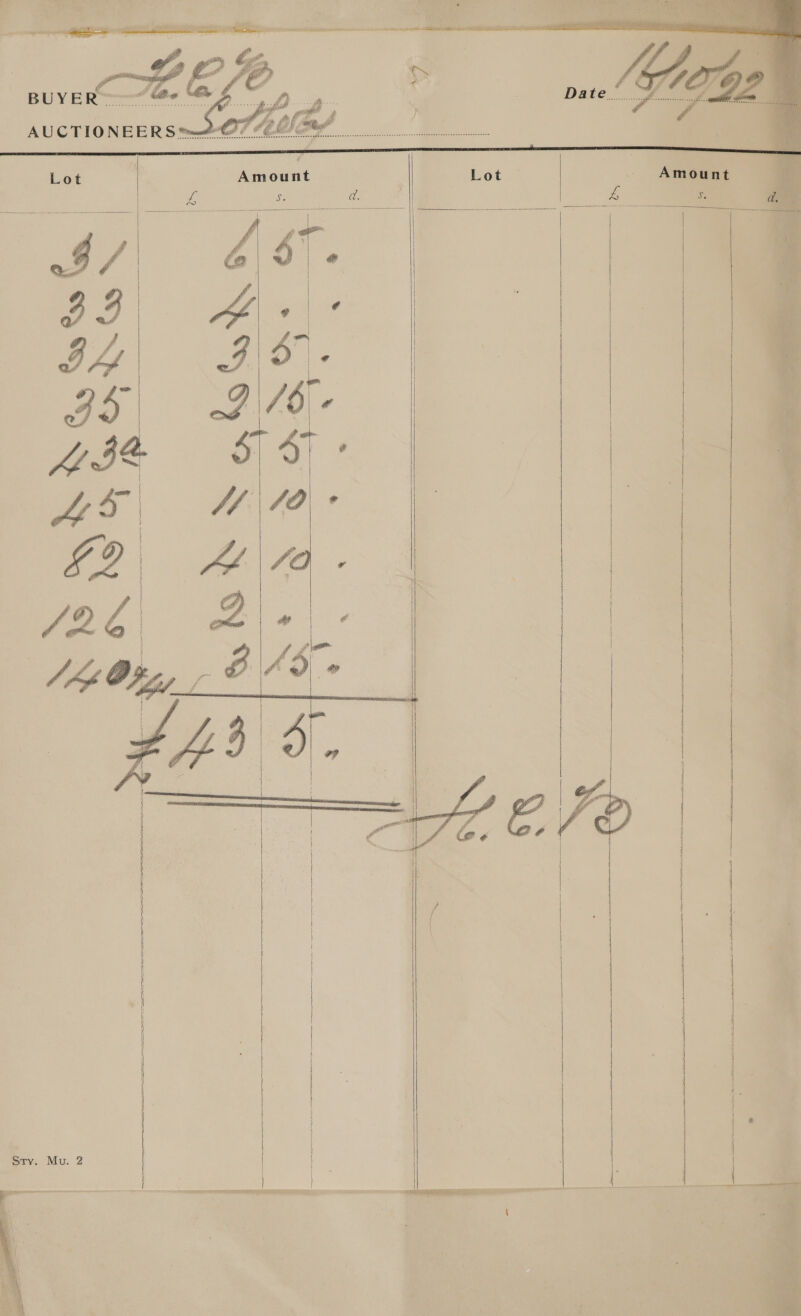 BUYER
Date
AUCTIONEERS Sotheby
Lot Amount Lot Amount
£ s. d. £ s. d.
31 6 5 .
33 4 . .
34 3 5 .
35 2 15 -
5 5 .
45 11 10 .
4 10 .
126 2 . .
3 15 .
£43 5 .
Sty. Mu. 2